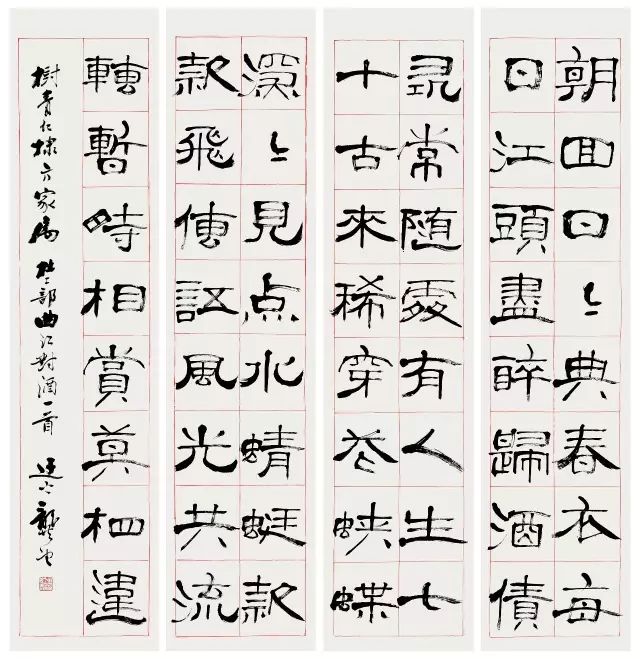 朝回日〻典春衣每
日江頭盡醉歸酒債
尋常隨處有人生七
十古來稀穿花蛺蝶
深〻見点水蜻蜓款
款飛傳語風光共流
轉暫時相賞莫相違
樹青仁棣方家属 杜工部曲江對酒一首 龔望